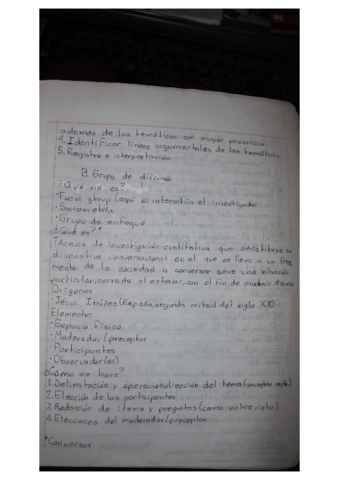 además de las temáticas con mayor presencia.
4. Identificar líneas argumentales de las temáticas.
5. Registro e interpretación
B. Grupo de discusión
¿Qué no es?
• Focus group (aquí es interactúa el investigador
• Sociometría
• Grupo de enfoque
¿Qué es?*
Técnica de investigación cualitativa que constituye un
dispositivo conversacional en el que se lleva a un frag
mento de la sociedad a conversar sobre una situación
particular, cerrada al exterior, con el fin de producir
Orígenes
• Jesús Ibáñez (España, segunda mitad del siglo XX)
Elementos
• Espacio físico
• Moderador/preceptor
• Participantes
• Observador(es)
¿Cómo se hace?
1. Delimitación y operacionalización del tema
2. Elección de los participantes
3. Redacción de items y preguntas (como entrevista)
4. Elecciones del moderador/preceptor
*Conversar